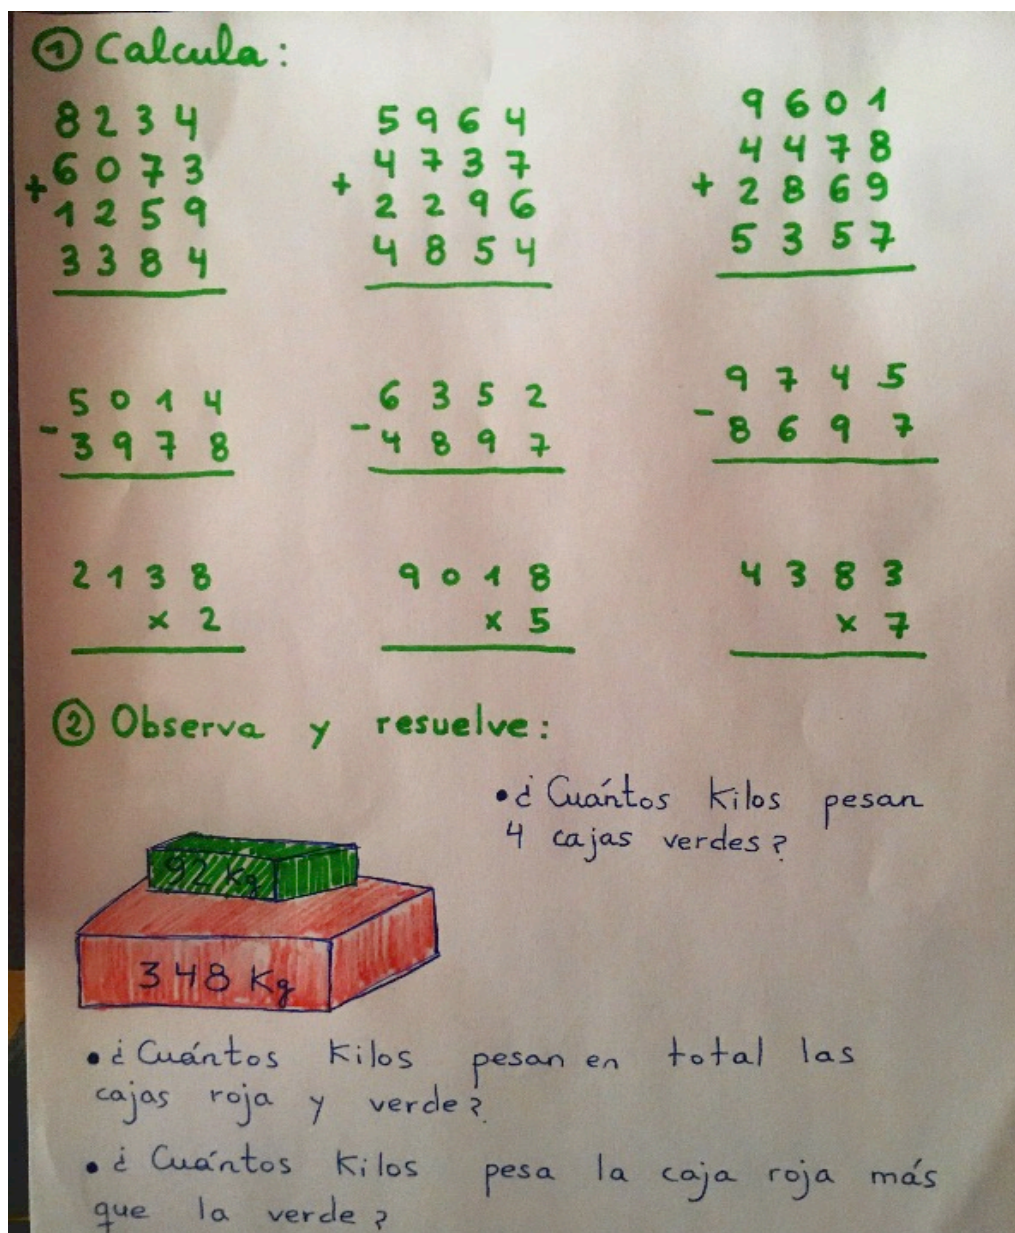 ① Calcula:
8234
6073
+1259
3384
5964
4737
+2296
4854
9601
4478
+2869
5357
5014
-3978
6352
-4897
9745
-8697
2138
x 2
9018
x 5
4383
x 7
② Observa y resuelve:
• ¿Cuántos Kilos pesan
4 cajas verdes?
92 Kg
348 Kg
• ¿Cuántos Kilos pesan en total las
cajas roja y verde?
• ¿Cuántos Kilos pesa la caja roja más
que la verde?